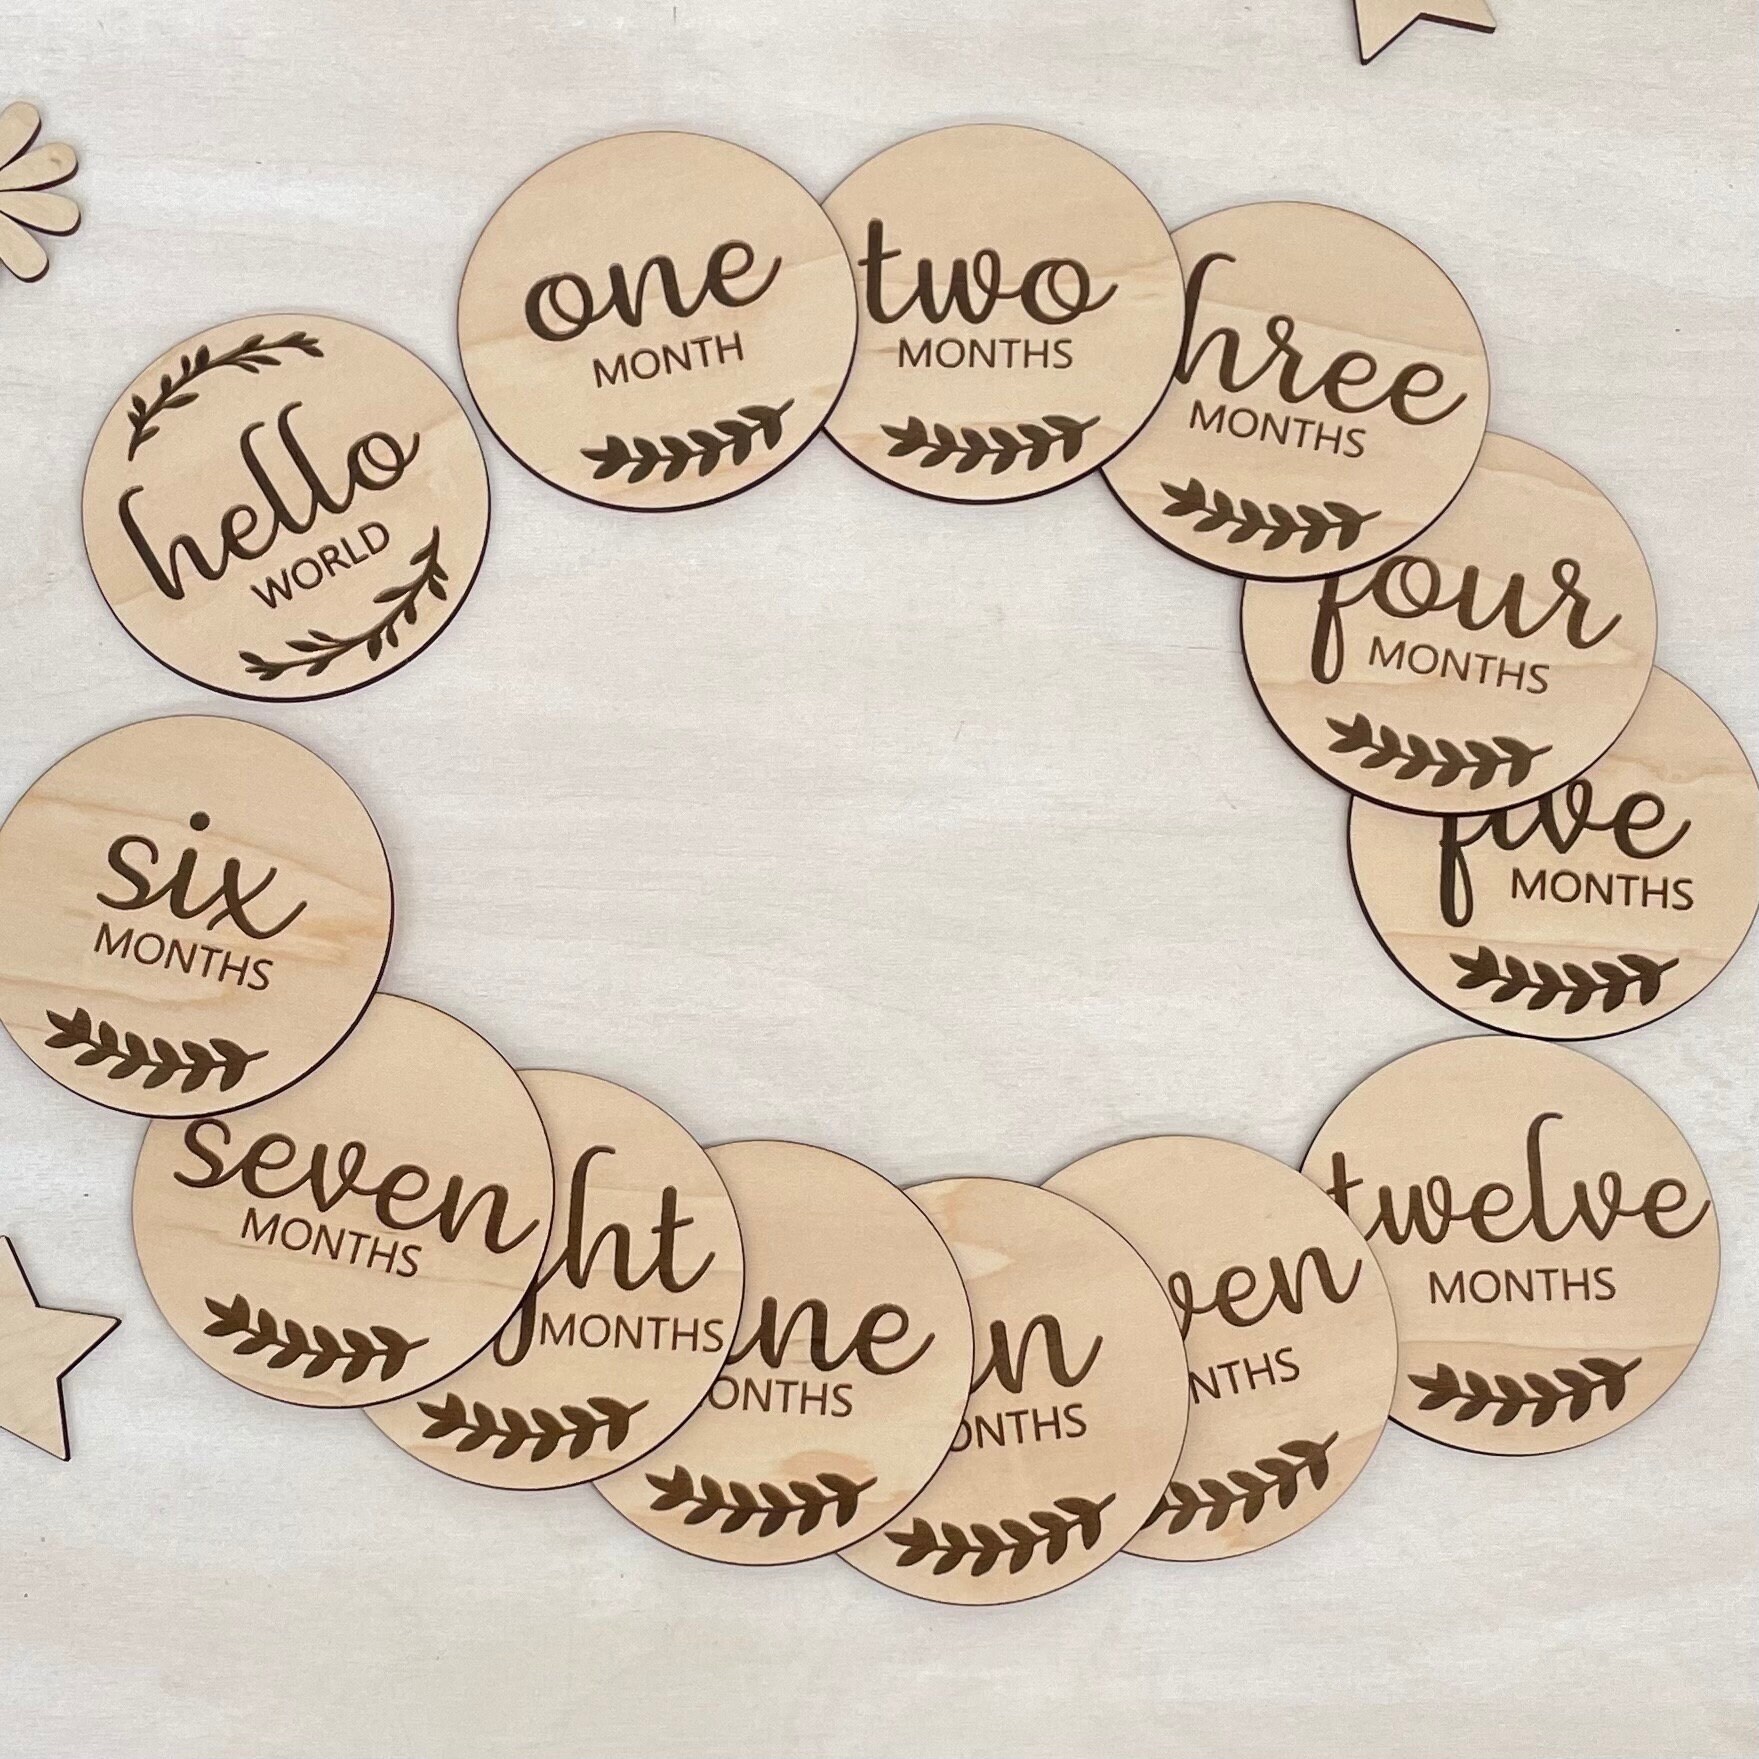 hello
WORLD
one
MONTH
two
MONTHS
hree
MONTHS
four
MONTHS
five
MONTHS
six
MONTHS
seven
MONTHS
ght
MONTHS
ine
ONTHS
en
ONTHS
ven
NTHS
twelve
MONTHS